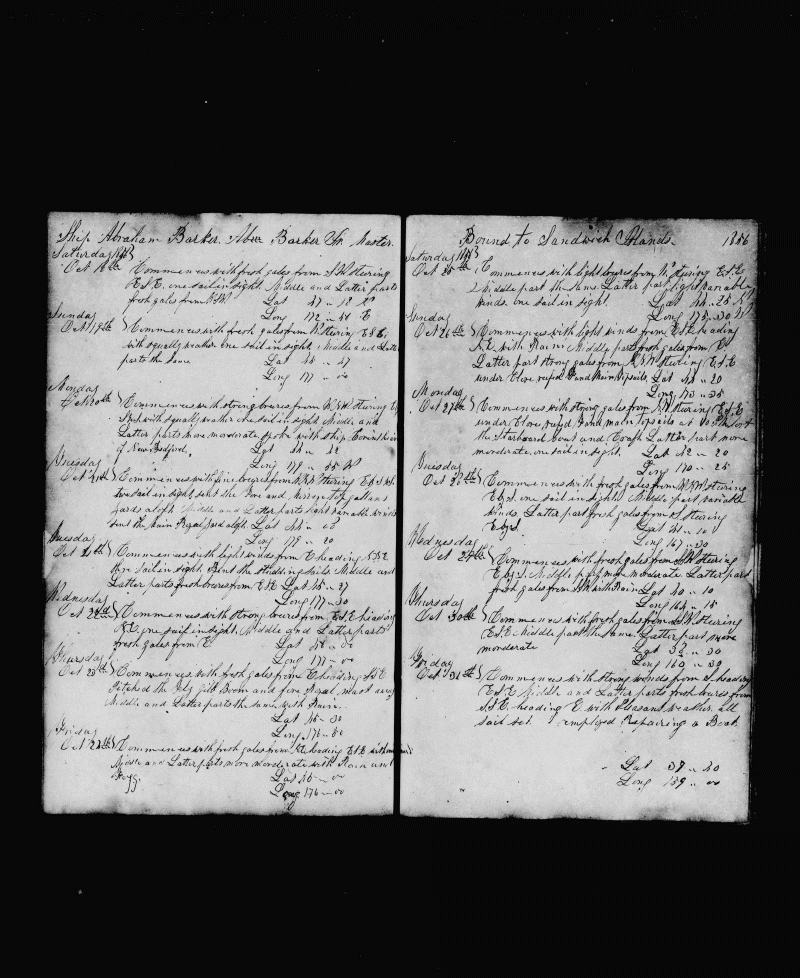 Ship Abraham Barker. Abm Barker Jr. Master.
Saturday
Oct 18th Commences with fresh gales from SW stering
E.S.E. one sail in sight. Middle and Latter parts
fresh gales from
Lat 47 - 18 N
Long 172 - 44 E
Sunday
Oct 19th Commences with fresh gales from stering E.S.E,
with squally weather one sail in sight, Middle and Latter
parts the same
Lat 46 - 47
Long 177 - 00
Monday
Oct 20th Commences with strong breeses from stering
with squally weather one sail in sight Middle and
Latter parts more moderate spoke with ship Corinthian
of New Bedford,
Lat 44 - 42
Long 179 - 55 W
Tuesday
Oct 21th Commences with fine breeses from stering
two sail in sight, sent the fore and mizzen top gallant
yards aloft Middle and Latter parts light variable winds
sent the main Royal yard aloft. Lat
Long 179 - 20
Tuesday
Oct 21th Commences with light winds from E heading
sail in sight. Bent the studding sails. Middle and
Latter parts fresh breeses from Lat 45 - 27
Long 177 - 30
Wednesday
Oct 22nd Commences with strong breeses from E.S.E heading
N.E. one sail in sight. Middle and Latter parts
fresh gales from E Lat
Long 177 - 00
Thursday
Oct 23th Commences with fresh gales from E heading
the Gib Boom and fore Royal mast away
Middle and Latter parts the same with Rain.
Lat 45 - 30
Long 176 - 50
Friday
Oct 24th Commences with fresh gales from heading
Middle and Latter parts more moderate with Rain and
Fogg. Lat 45 - 00
Long 176 - 00
Bound to Sandwich Islands. 1856
Saturday
Oct 25th Commences with light breeses from N. stering E.S.E
Middle part the same. Latter part light variable
winds. one sail in sight. Lat 44 - 25 N
Long 175 - 30 W
Sunday
Oct 26th Commences with light winds from E.S.E heading
N.E. with Rain. Middle part fresh gales from
Latter part strong gales from stering E.S.E
under close reefed Fore and Main topsails. Lat
Long 173 - 35
Monday
Oct 27th Commences with strong gales from stering E.S.E
under close reefed Fore and main topsails at
the Starboard boat and Latter part more
moderate, one sail in sight. Lat 42 - 20
Long 170 - 25
Tuesday
Oct 28th Commences with fresh gales from stering
one sail in sight. Middle part variable
winds. Latter part fresh gales from stering
Lat 41 - 10
Long 167 - 30
Wednesday
Oct 29th Commences with fresh gales from stering
Middle part more moderate Latter part
fresh gales from with Rain. Lat 40 - 10
Long 164 - 15
Thursday
Oct 30th Commences with fresh gales from S.W. stering
E.S.E. Middle part the same. Latter part more
moderate Lat 39 - 30
Long 160 - 30
Friday
Oct 31th Commences with strong winds from S. heading
E.S.E Middle and Latter parts fresh breeses from
S.S.E. heading E. with Pleasant weather. all
sail set. employed Repairing a Boat.
Lat 39 - 40
Long 159 - 00